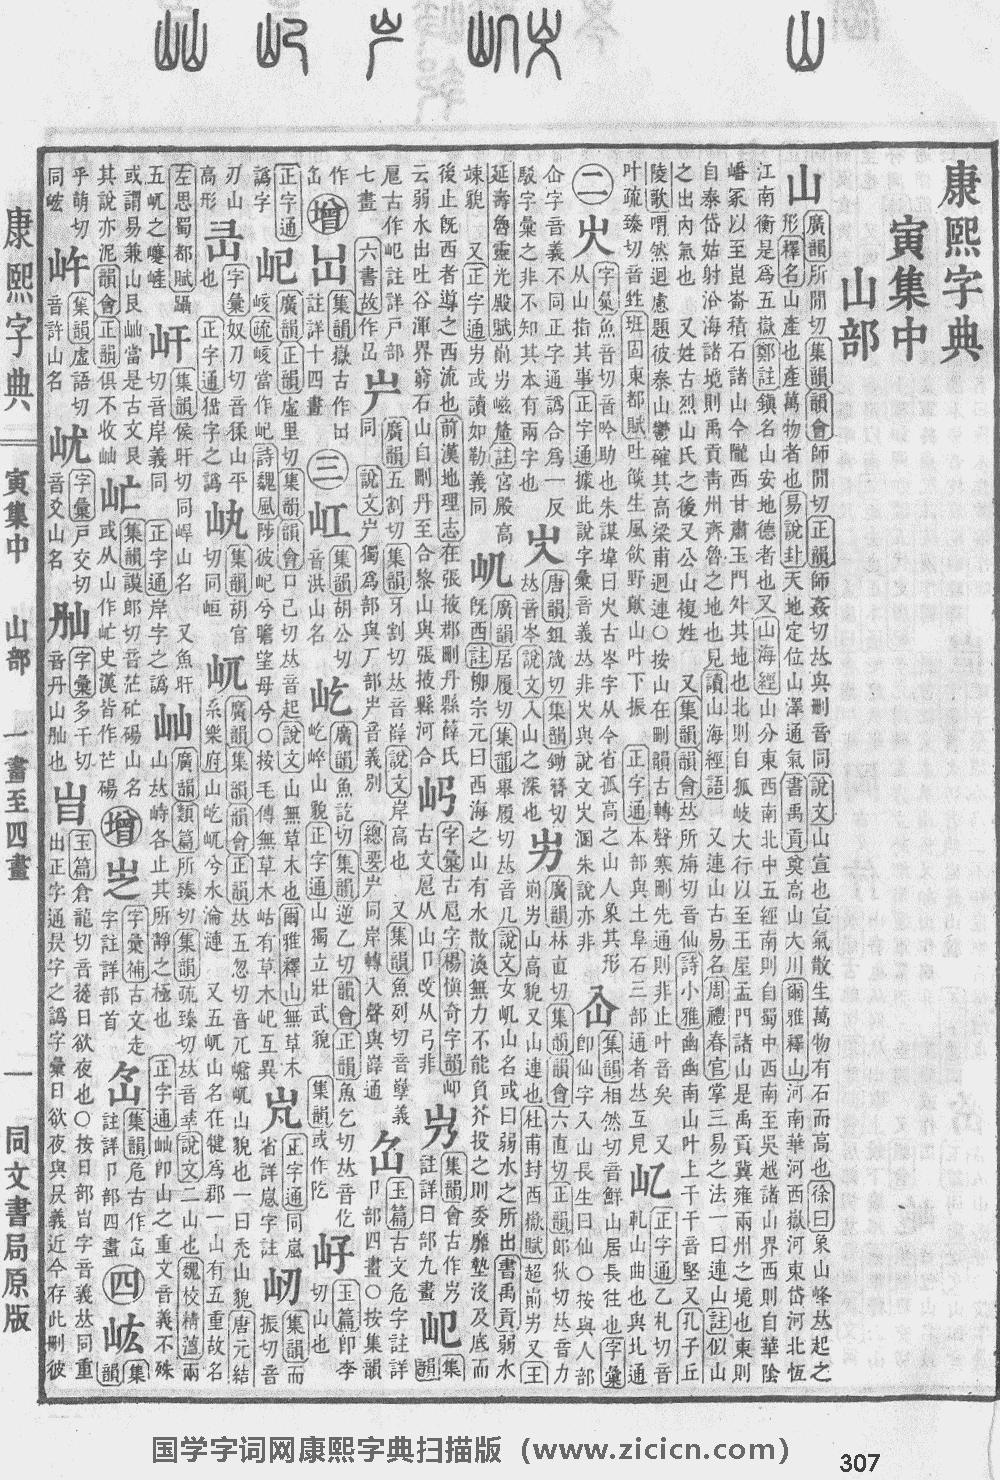 康熙字典
寅集中
山部
山 廣韻所閒切集韻韻會師閒切正韻師姦切𠀤與刪音同說文山宣也宣氣散生萬物有石而高也徐曰象山峰𠀤起之
形釋名山產也產萬物者也易說卦天地定位山澤通氣書禹貢奠高山大川爾雅釋山河南華河西嶽河東岱河北恆
江南衡是爲五嶽鄭註鎭名山安地德者也又山海經山分東西南北中五經南則自蜀中西南至吳越諸山界西則自華陰
嶓冢以至崑崙積石諸山今隴西甘肅玉門外其地也北則自狐岐大行以至王屋孟門諸山是禹貢冀雍兩州之境也東則
自泰岱姑射沿海諸境則禹貢靑州齊魯之地也見讀山海經語 又連山古易名周禮春官掌三易之法一曰連山註似山
之出內氣也 又姓古烈山氏之後又公山複姓 又集韻韻會𠀤所旃切音仙詩小雅幽幽南山叶上干干音堅又孔子丘
陵歌喟然迴慮題彼泰山鬱確其高梁甫迴連○按山在刪韻古轉聲寒刪先通則非止叶音矣 又
叶疏臻切音甡班固東都賦吐燄生風飮野歕山叶下振 正字通本部與土阜石三部通者𠀤互見
正字通乙札切音
軋山曲也與圠通
二
字彙魚音切音吟助也朱謀㙔曰火古岑字从今省孤高之山人象其形
从山指其事正字通據此說字彙音義𠀤非
集韻相然切音鮮山居長往也字彙
卽仙字入山長生曰仙○按與人部
仚字音義不同正字通譌合爲一反
駁字彙之非不知其本有兩字也
唐韻鉏箴切集韻鋤簪切
𠀤音岑說文入山之深也
屴 廣韻林直切集韻韻會六直切正韻郞狄切𠀤音力
崱屴山高貌又山連也杜甫封西嶽賦超崱屴又王
延壽魯靈光殿賦崱屴嵫釐註宮殿高
竦貌 又正字通屴或讀如勒義同
屼 廣韻居履切集韻舉履切𠀤音几說文女屼山名或曰弱水之所出書禹貢弱水
旣西註柳宗元曰西海之山有水散渙無力不能負芥投之則委靡墊沒及底而
後止旣西者導之西流也前漢地理志在張掖郡刪丹縣薛氏
云弱水出吐谷渾界窮石山自刪丹至合黎山與張掖縣河合
字彙古卮字楊愼奇字韻
古文卮从山卩改从弓非
集韻會古作屶
註詳曰部九畫
屺 集韻
卮古作屺註詳戶部
七畫 六書故作嵒
屵 廣韻五割切集韻牙割切𠀤音嶭說文岸高也 又集韻魚列切音孽義
同 說文屵獨爲部與厂部屵音義別 總要屵同岸轉入聲與嶭通
玉篇古文危字註詳
卩部四畫○按集韻
作
增
集韻嶽古作
註詳十四畫
三
屸 集韻胡公切
音洪山名
屹 廣韻魚訖切集韻逆乙切韻會正韻魚乞切𠀤音仡
屹崪山貌正字通山獨立壯武貌 集韻或作阣
玉篇卽李
切山也
正字通
譌字
屺 廣韻正韻虛里切集韻韻會口己切𠀤音起說文山無草木也爾雅釋山無草木
峐疏峐當作屺詩魏風陟彼屺兮瞻望母兮○按毛傳無草木岵有草木屺互異
正字通同嵐
省詳嵐字註
屻 集韻而
振切音
刃山
高形
字彙奴刀切音猱山平
也 正字通峱字之譌
集韻胡官
切同峘
屼 廣韻集韻韻會正韻𠀤五忽切音兀崛屼山貌也一曰禿山貌唐元結
系樂府山屹屼兮水淪漣 又五屼山名在犍爲郡一山有五重故名
左思蜀都賦躡
五屼之蹇嵼
屽 集韻侯旰切同峄山名 又魚旰
切音岸義同 正字通岸字之譌
屾 廣韻類篇所臻切集韻疏臻切𠀤音莘說文二山也魏校精薀兩
山𠀤峙各止其所靜之極也 正字通屾卽山之重文音義不殊
或謂易兼山艮屾當是古文艮
其說亦泥韻會正韻俱不收屾
集韻謨郞切音茫硭碭山名
或从山作史漢皆作芒碭
增
字彙補古文走
字註詳部首
集韻危古作
註詳卩部四畫
四
集韻
乎萌切
同峵
集韻虛語切
音許山名
字彙戶交切
音爻山名
字彙多干切
音丹山也
玉篇倉龍切音蓯日欲夜也○按日部旹字音義𠀤同重
出正字通旲字之譌字彙日欲夜與旲義近今存此刪彼
康熙字典
寅集中
山部
一畫至四畫
一
同文書局原版
国学字词网康熙字典扫描版（www.zicicn.com）
307